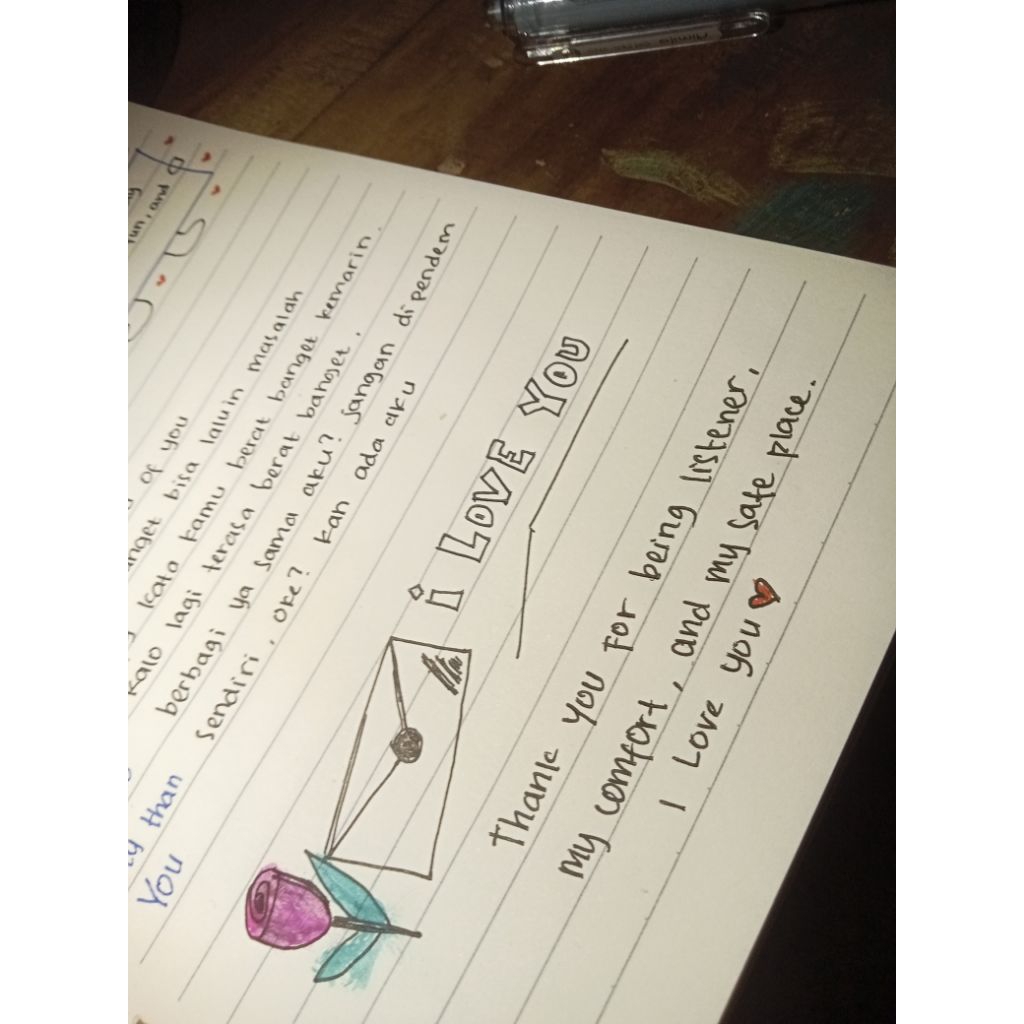 fun, and
of you
banget bisa laluin masalah
kata kamu berat banget kemarin.
kalo lagi terasa berat banget.
berbagi ya sama aku? Jangan dipendem
sendiri, oke? kan ada aku
than
You
i LOVE YOU
Thank you for being listener,
my comfort, and my safe place.
I Love you